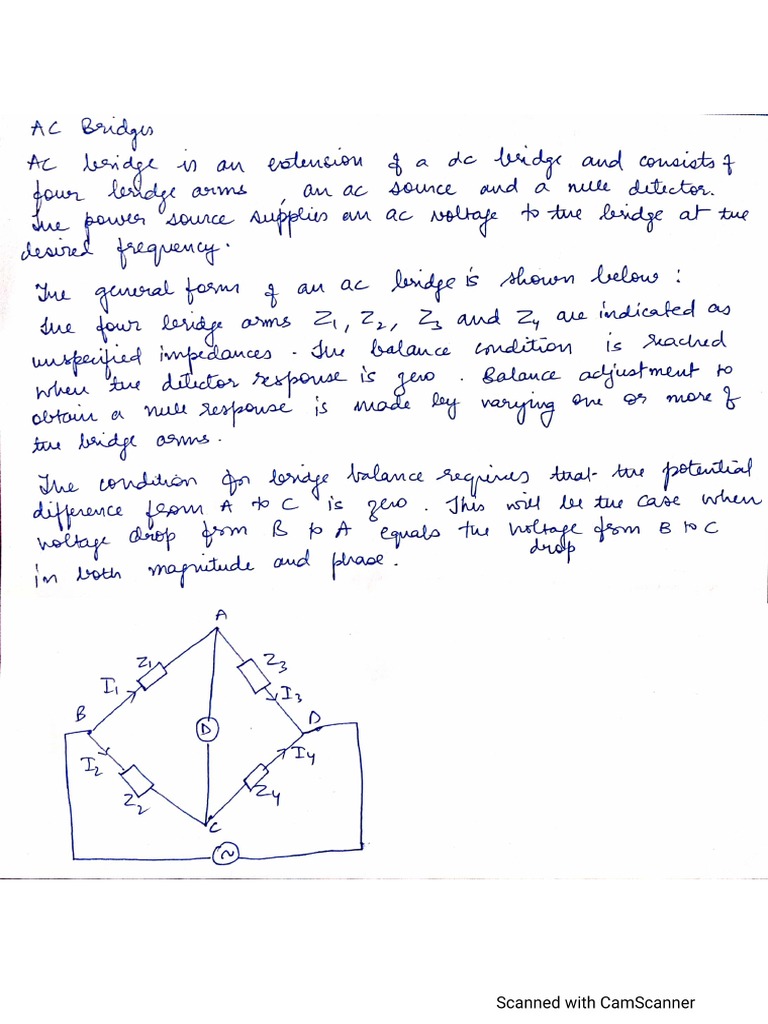 AC Bridges
AC bridge is an extension of a dc bridge and consists of
four bridge arms, an ac source and a null detector.
The power source supplies an ac voltage to the bridge at the
desired frequency.
The general form of an ac bridge is shown below:
The four bridge arms Z1, Z2, Z3 and Z4 are indicated as
unspecified impedances. The balance condition is reached
when the detector response is zero. Balance adjustment to
obtain a null response is made by varying one or more of
the bridge arms.
The condition for bridge balance requires that the potential
difference from A to C is zero. This will be the case when
voltage drop from B to A equals the voltage from B to C
drop
in both magnitude and phase.
A
Z1
Z3
I1
I3
B
D
D
I2
I4
Z2
Z4
C
Scanned with CamScanner